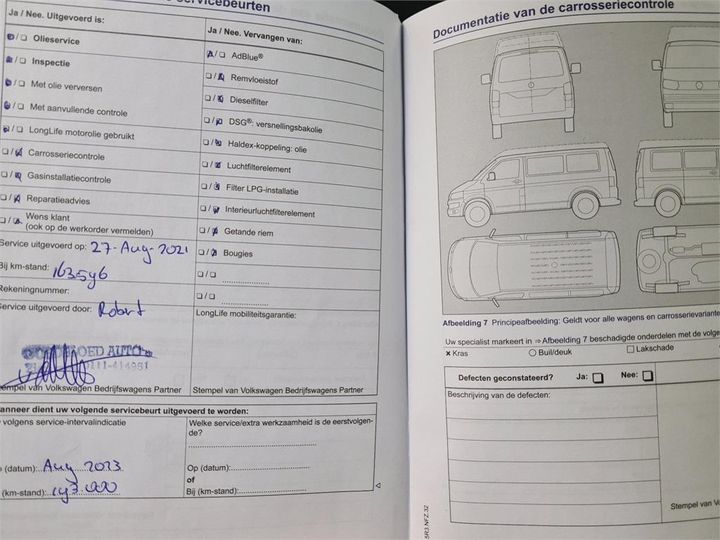 servicebeurten
Ja / Nee. Uitgevoerd is:
Olieservice
Inspectie
Met olie verversen
Met aanvullende controle
LongLife motorolie gebruikt
Carrosseriecontrole
Gasinstallatiecontrole
Reparatieadvies
Wens klant
(ook op de werkorder vermelden)
Service uitgevoerd op: 27-Aug-2021
Bij km-stand: 163596
Rekeningnummer:
Service uitgevoerd door: Robert
OED AUTO
0211-414961
Stempel van Volkswagen Bedrijfswagens Partner
Ja / Nee. Vervangen van:
AdBlue®
Remvloeistof
Dieselfilter
DSG®: versnellingsbakolie
Haldex-koppeling: olie
Luchtfilterelement
Filter LPG-installatie
Interieurluchtfilterelement
Getande riem
Bougies
LongLife mobiliteitsgarantie:
Stempel van Volkswagen Bedrijfswagens Partner
Wanneer dient uw volgende servicebeurt uitgevoerd te worden:
volgens service-intervalindicatie
(datum): Aug 2023
(km-stand): 193.000
Welke service/extra werkzaamheid is de eerstvolgen-
de?
Op (datum):
of
Bij (km-stand):
Documentatie van de carrosseriecontrole
Afbeelding 7 Principeafbeelding: Geldt voor alle wagens en carrosserievariante
Uw specialist markeert in ⇒Afbeelding 7 beschadigde onderdelen met de volge
x Kras Buil/deuk Lakschade
Defecten geconstateerd? Ja: Nee:
Beschrijving van de defecten:
Stempel van Vo
5R3.NFZ.32